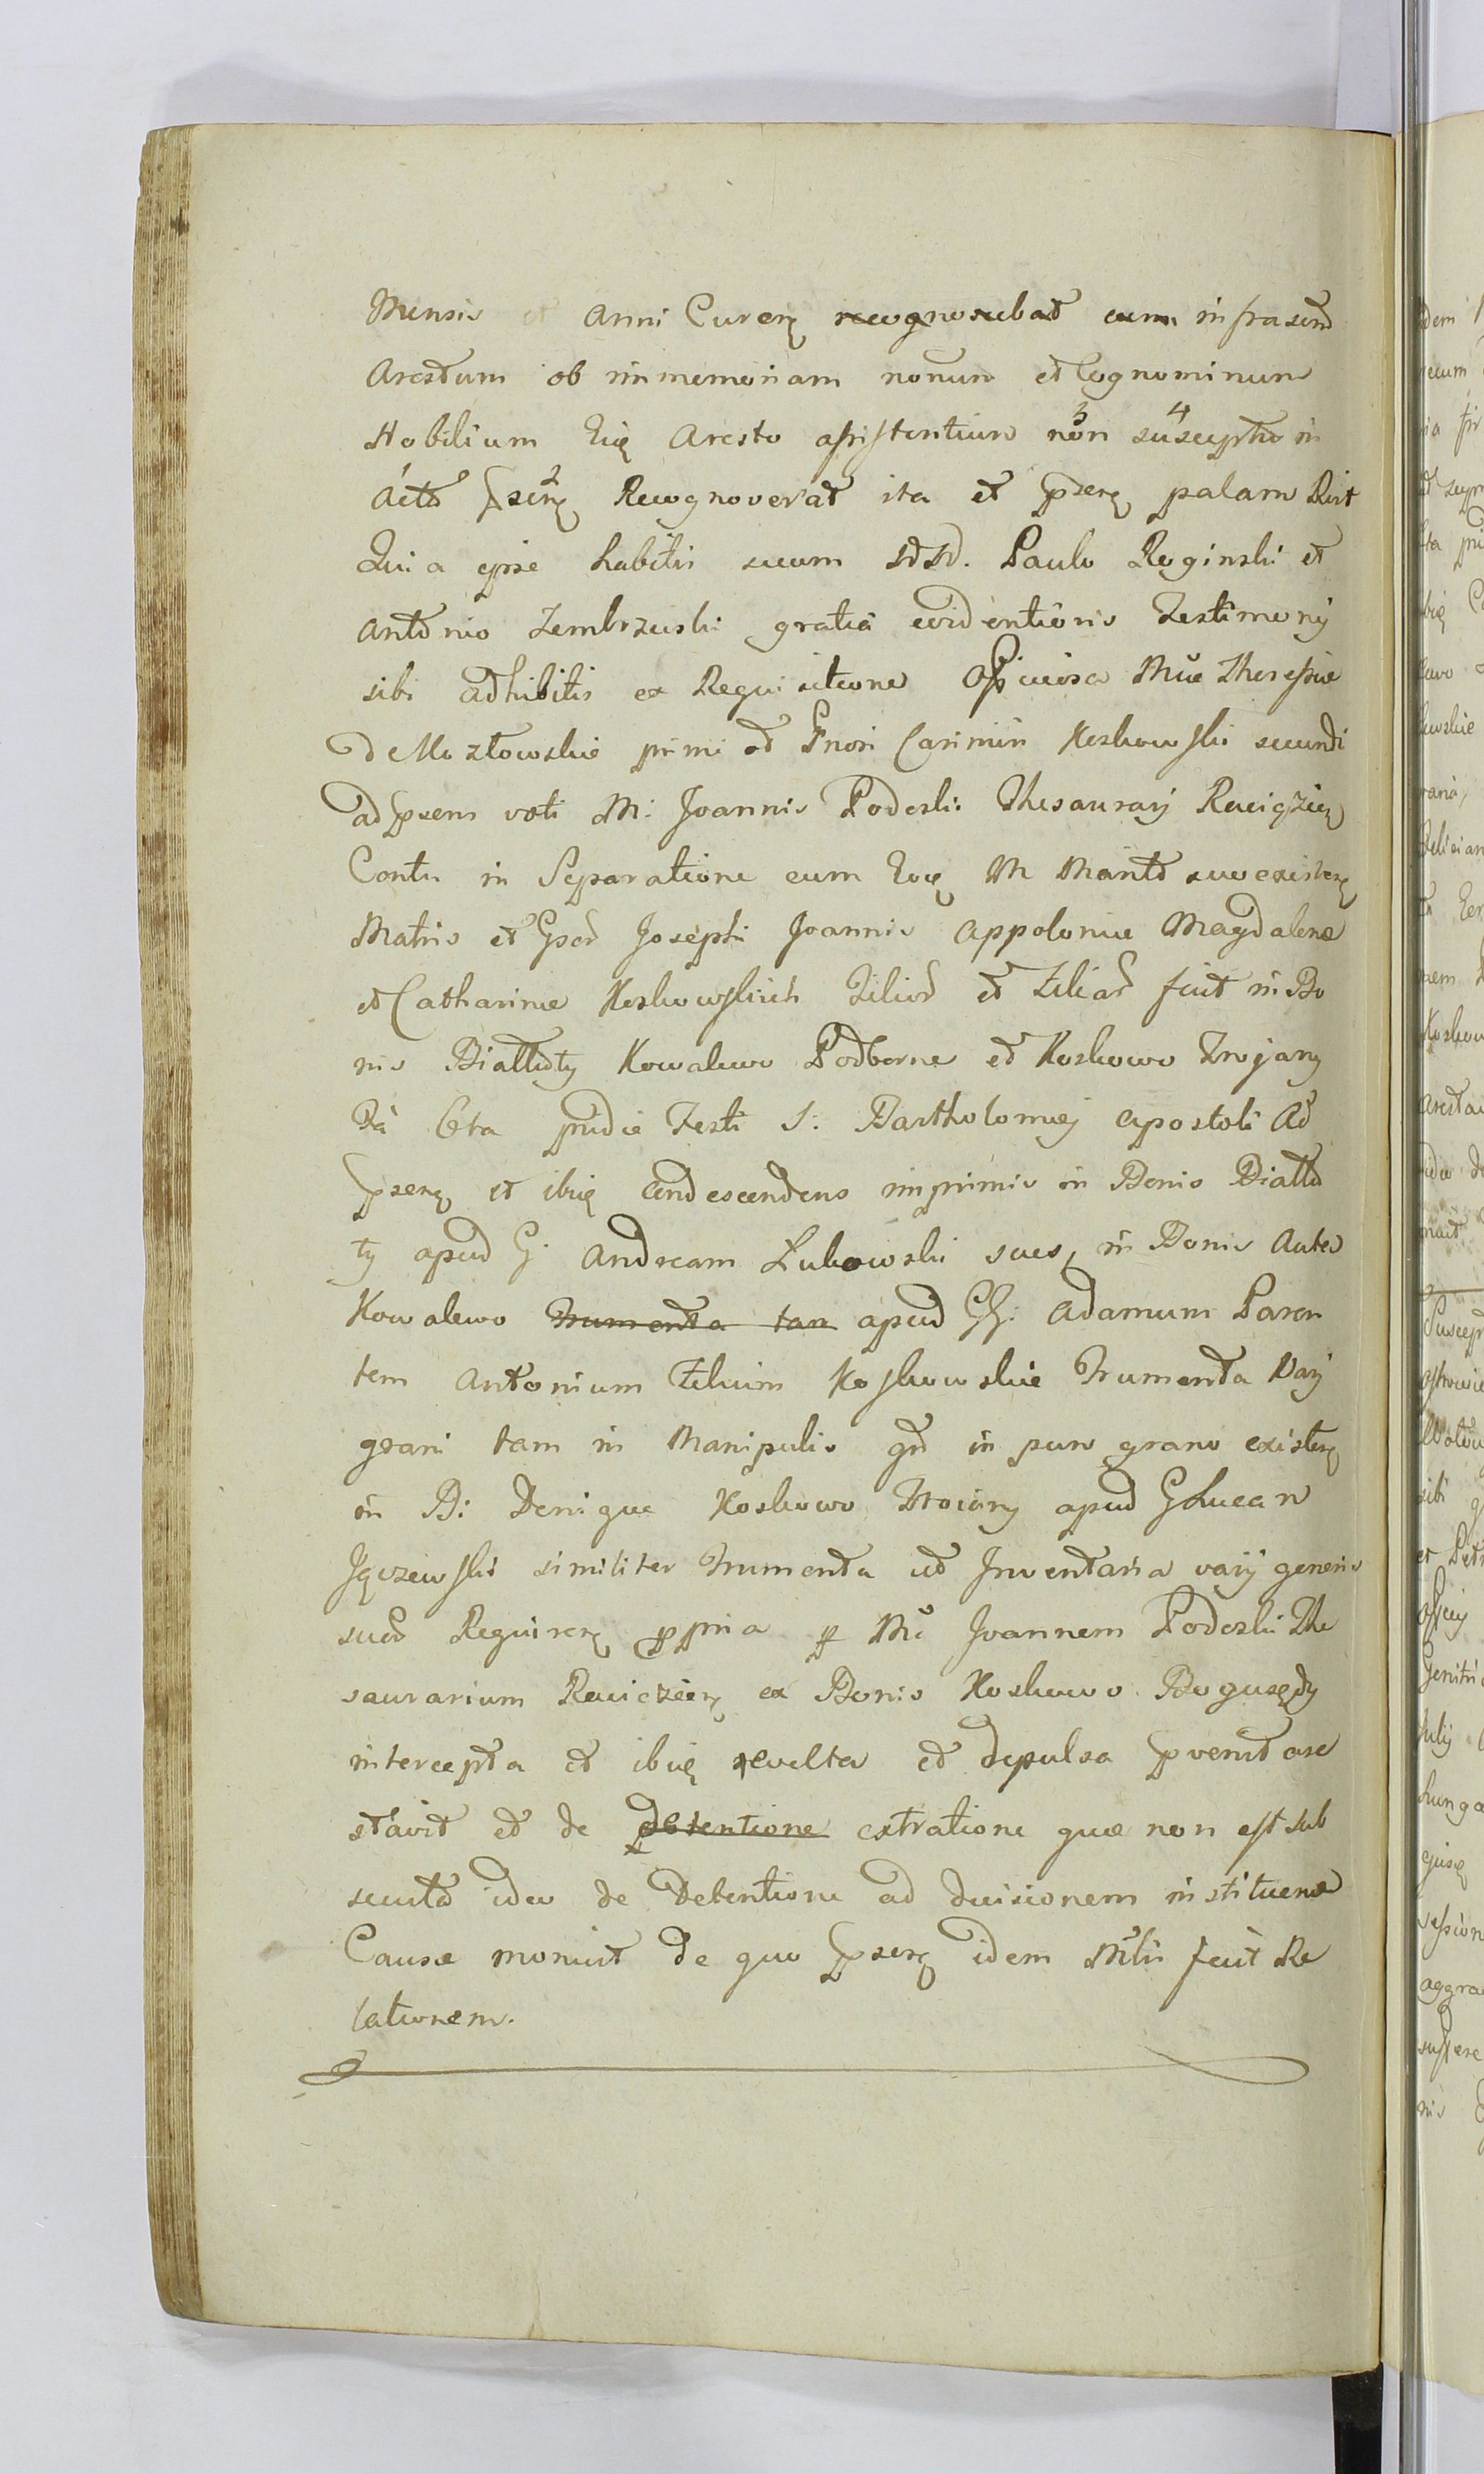 Mensis et Anni Curen recognoscebat cum infrascr
Arestum ob immemoriam nonum et Cognominum
Nobilium huic Aresto assistentium non 3 suscepto 4 in
Acto 1 psen 2 Recognoverat ita et psen palam Rlt
Quia ipse habitis secum NdNd. Paulo Roginski et
Antonio Zembrzuski gratia evidentioris Testimony
sibi adhibitis ex Requisitione Officiosa Mae Theressiae
de Mozłowskie primi ad Gnosi Casimiri Koskowski secundi
ad psens voti M: Joannis Podoski Thesaurarÿ Raciązien
Contu in Separatione cum hoc M Marito suo existen
Matris et Gsor Josephi Joannis Appoloniae Magdalenae
et Catharinae Koskowskich Filior et Filiar fuit in Bo
nis Białłuty Kowalewo Podborne et Koskowo Trojany
Fa 6ta pridie Festi S: Bartholomaej Apostoli Ad
psens et ibiq Condescendens imprimis in Bonis Białłu
ty apud G: Andream Lukowski sues, in Bonis Autem
Kowalewo Frumenta tam apud GG: Adamum Paren
tem Antonium Filium Koskowskie Frumenta Varÿ
grani tam in Manipulis qm in puro grano existen
in B: Denique Koskowo Troiany apud G Lucam
Jączewski similiter Frumenta et Inventaria varÿ generis
suor Requiren ppria p M Joannem Podoski The
saurarium Raciczien ex Bonis Koskowo Bogusędy
intercepta et ibiq revelta et depulsa pvenit are
stavit et de detentione extratione quae non est sub
secuta ideo de Detentione ad decisionem instituenae
Causae monuit de quo psen idem Mlis fecit Re
lationem.